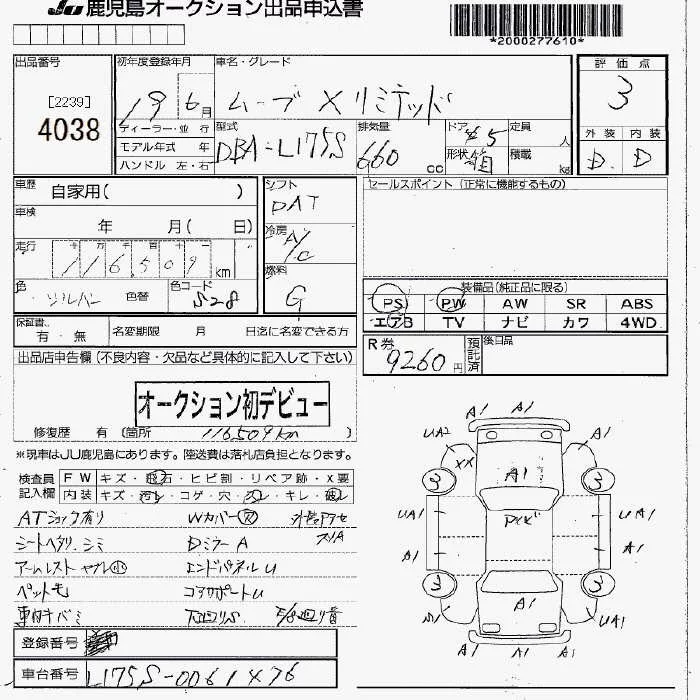 JU 鹿児島オークション出品申込書
*2000277610*
出品番号
[2239]
4038
初年度登録年月
19 6月
ディーラー・並 行
モデル年式 年
ハンドル 左・右
車名・グレード
ムーブ X リミテッド
型式
DBA-L175S
排気量
660 cc
ドア 5
形状 箱
定員 人
積載 kg
評 価 点
3
外 装 内 装
D. D
車歴 自家用( )
車検 年 月( 日)
走行 十 万 千 百 十
116509 km
色 シルバー 色替
色コード S28
シフト
DAT
冷房
A/C
燃料
G
セールスポイント (正常に機能するもの)
装備品(純正品に限る)
PS PW AW SR ABS
エアB TV ナビ カワ 4WD
保証書 有・無
名変期限 月 日迄に名変できる方
R券
9260円
預託済
後日品
出品店申告欄 (不良内容・欠品など具体的に記入して下さい)
オークション初デビュー
修復歴 有 (箇所 116509km )
※現車はJU鹿児島にあります。陸送費は落札店負担となります。
検査員 FW キズ・飛石・ヒビ割・リペア跡・X要
記入欄 内装 キズ・汚れ・コゲ・穴・凹・キレ・破レ
ATショック有り
Wカバー穴
シートヘタリ、シミ
Dミラー A
アームレスト ヤブレ小
エンドパネル U
ペット毛
コアサポート U
車内キバミ
下回りS
登録番号
車台番号
L175S-0061476
A1
A1 A1
UA2 A1
XX A1
3 3
UA1 UA1
A1 A1
3 3
A1
UA1
A1 A1
A1